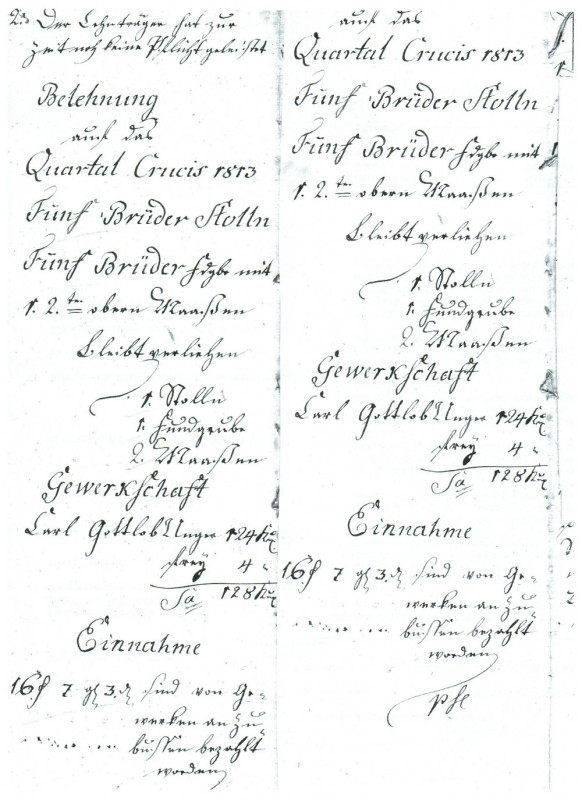 2., Der Lehnträger hat zur
Zeit noch keine Pflicht geleistet
Belehnung
auf das
Quartal Crucis 1813
Fünf Brüder Stolln
Fünf Brüder Fdgbe mit
1. 2.te obern Maaßen
Bleibt verliehen
1. Stolln
1. Fundgrube
2. Maaßen
Gewerkschaft
Carl Gottlob Unger 124 Kux
frey 4 "
Sa 128 Kux
Einnahme
16 f 7 gl 3 d sind von Ge-
werken an Zu-
bußen bezahlt
worden
auf das
Quartal Crucis 1813
Fünf Brüder Stolln
Fünf Brüder Fdgbe mit
1. 2.te obern Maaßen
Bleibt verliehen
1. Stolln
1. Fundgrube
2. Maaßen
Gewerkschaft
Carl Gottlob Unger 124 Kux
frey 4 "
Sa 128 Kux
Einnahme
16 f 7 gl 3 d sind von Ge-
werken an Zu-
bußen bezahlt
worden